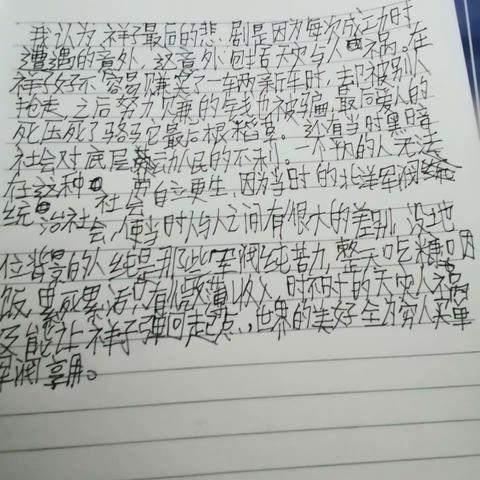 我认为祥子最后的悲剧是因为每次成功时
遭遇的意外,这意外包括天灾与人祸。在
祥子好不容易赚买了一辆新车时,却被别人
抢走,之后努力赚的钱也被骗,最后爱人的
死压死了骆驼最后根稻草。还有当时黑暗
社会对底层劳动人民的不利。一个的人无法
在这种 社会自立更生,因为当时的北洋军阀
统治社会,使当时人与人之间有很大的差别,没地
位背景的人纯是那些军阀纯苦力,整天吃糠咽
饭,累死累活只有微薄收入,时不时的天灾人祸
又能让祥子弹回起点,世界的美好全为穷人买单
军阀享用。